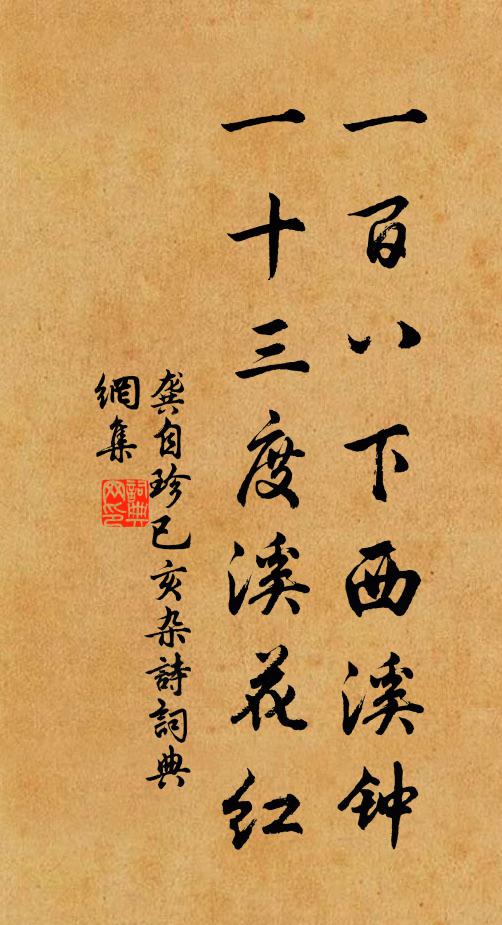 一百八下西溪钟
一十三度溪花红
龚自珍己亥杂詩詞典
網集
詞典
网印